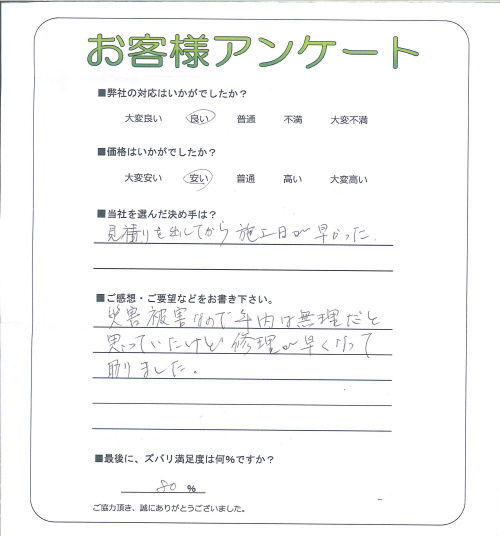 お客様アンケート
■弊社の対応はいかがでしたか？
大変良い 良い 普通 不満 大変不満
■価格はいかがでしたか？
大変安い 安い 普通 高い 大変高い
■当社を選んだ決め手は？
見積りを出してから施工日が早かった.
■ご感想・ご要望などをお書き下さい。
災害被害なので年内は無理だと
思っていたけど修理が早くなって
助りました。
■最後に、ズバリ満足度は何%ですか？
80 %
ご協力頂き、誠にありがとうございました。